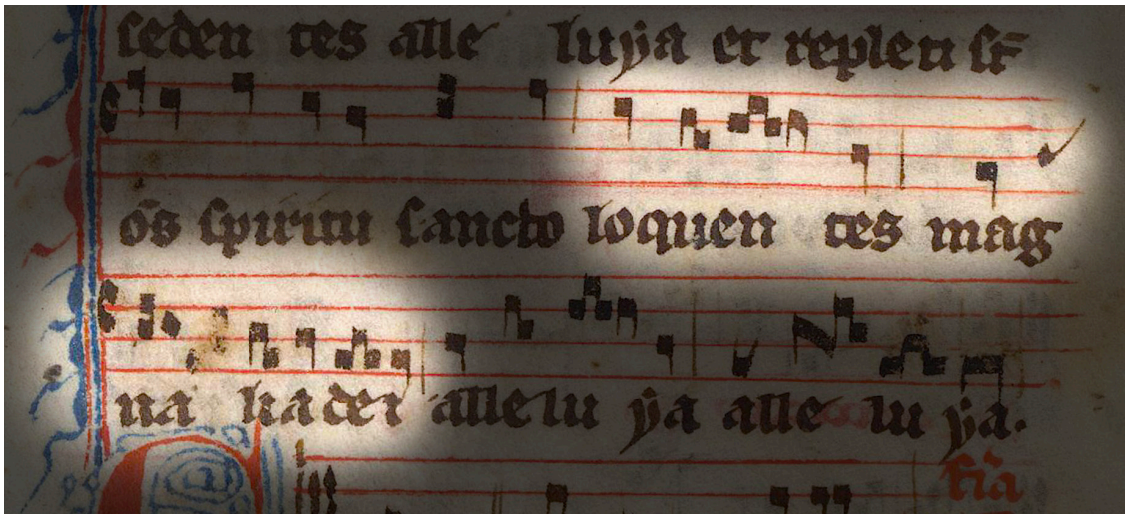 seden tes alle luya et repleti st̄
om̄s spiritu sancto loquen tes mag
na lia dei allelu ya alle lu ya.